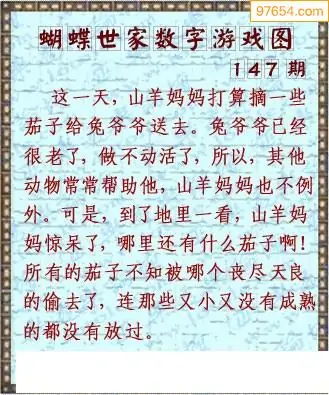 97654.com
蝴蝶世家数字游戏图
147期
这一天，山羊妈妈打算摘一些
茄子给兔爷爷送去。兔爷爷已经
很老了，做不动活了，所以，其他
动物常常帮助他，山羊妈妈也不例
外。可是，到了地里一看，山羊妈
妈惊呆了，哪里还有什么茄子啊！
所有的茄子不知被哪个丧尽天良
的偷去了，连那些又小又没有成熟
的都没有放过。